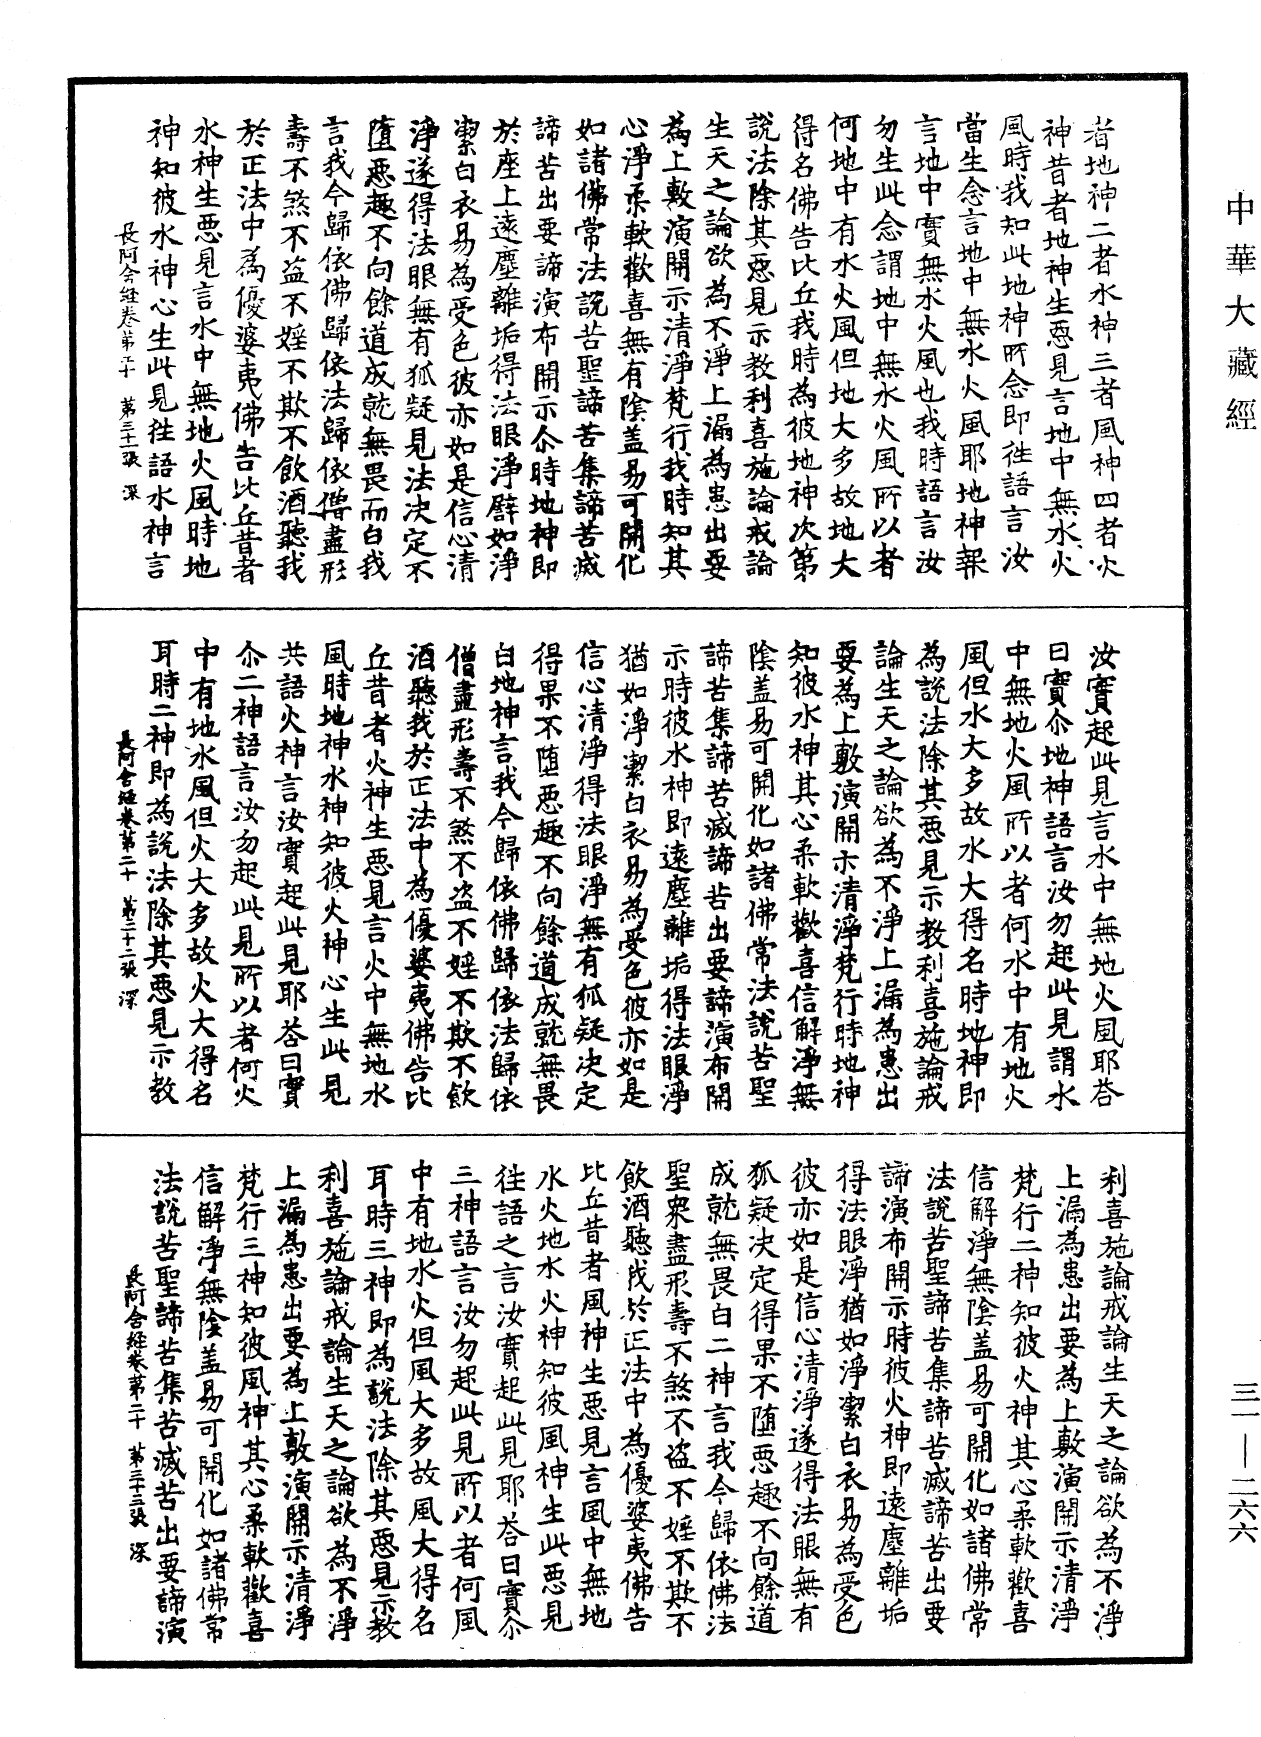 中華大藏經
三一—二六六
者地神二者水神三者風神四者火
神昔者地神生惡見言地中無水火
風時我知此地神所念即往語言汝
當生念言地中無水火風耶地神報
言地中實無水火風也我時語言汝
勿生此念謂地中無水火風所以者
何地中有水火風但地大多故地大
得名佛告比丘我時為彼地神次第
說法除其惡見示教利喜施論戒論
生天之論欲為不淨上漏為患出要
為上敷演開示清淨梵行我時知其
心淨柔軟歡喜無有陰蓋易可開化
如諸佛常法說苦聖諦苦集諦苦滅
諦苦出要諦演布開示尒時地神即
於座上遠塵離垢得法眼淨譬如淨
潔白衣易為受色彼亦如是信心清
淨遂得法眼無有狐疑見法決定不
墮惡趣不向餘道成就無畏而白我
言我今歸依佛歸依法歸依僧盡形
壽不煞不盜不婬不欺不飲酒聽我
於正法中為優婆夷佛告比丘昔者
水神生惡見言水中無地火風時地
神知彼水神心生此見往語水神言
長阿含經卷第二十　第三十一張　深
汝實起此見言水中無地火風耶荅
曰實尒地神語言汝勿起此見謂水
中無地火風所以者何水中有地火
風但水大多故水大得名時地神即
為說法除其惡見示教利喜施論戒
論生天之論欲為不淨上漏為患出
要為上敷演開示清淨梵行時地神
知彼水神其心柔軟歡喜信解淨無
陰蓋易可開化如諸佛常法說苦聖
諦苦集諦苦滅諦苦出要諦演布開
示時彼水神即遠塵離垢得法眼淨
猶如淨潔白衣易為受色彼亦如是
信心清淨得法眼淨無有狐疑決定
得果不墮惡趣不向餘道成就無畏
白地神言我今歸依佛歸依法歸依
僧盡形壽不煞不盜不婬不欺不飲
酒聽我於正法中為優婆夷佛告比
丘昔者火神生惡見言火中無地水
風時地神水神知彼火神心生此見
共語火神言汝實起此見耶荅曰實
尒二神語言汝勿起此見所以者何火
中有地水風但火大多故火大得名
耳時二神即為說法除其惡見示教
長阿含經卷第二十　第三十二張　深
利喜施論戒論生天之論欲為不淨
上漏為患出要為上敷演開示清淨
梵行二神知彼火神其心柔軟歡喜
信解淨無陰蓋易可開化如諸佛常
法說苦聖諦苦集諦苦滅諦苦出要
諦演布開示時彼火神即遠塵離垢
得法眼淨猶如淨潔白衣易為受色
彼亦如是信心清淨遂得法眼無有
狐疑決定得果不墮惡趣不向餘道
成就無畏白二神言我今歸依佛法
聖眾盡形壽不煞不盜不婬不欺不
飲酒聽我於正法中為優婆夷佛告
比丘昔者風神生惡見言風中無地
水火地水火神知彼風神生此惡見
往語之言汝實起此見耶荅曰實尒
三神語言汝勿起此見所以者何風
中有地水火但風大多故風大得名
耳時三神即為說法除其惡見示教
利喜施論戒論生天之論欲為不淨
上漏為患出要為上敷演開示清淨
梵行三神知彼風神其心柔軟歡喜
信解淨無陰蓋易可開化如諸佛常
法說苦聖諦苦集苦滅苦出要諦演
長阿含經卷第二十　第三十三張　深